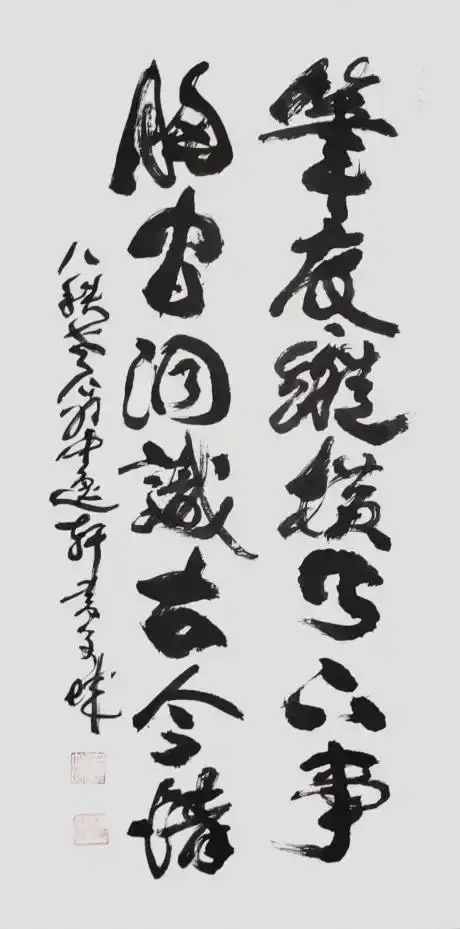 筆底縱橫天下事
胸 洞識古今情
八秩老翁中逸軒書